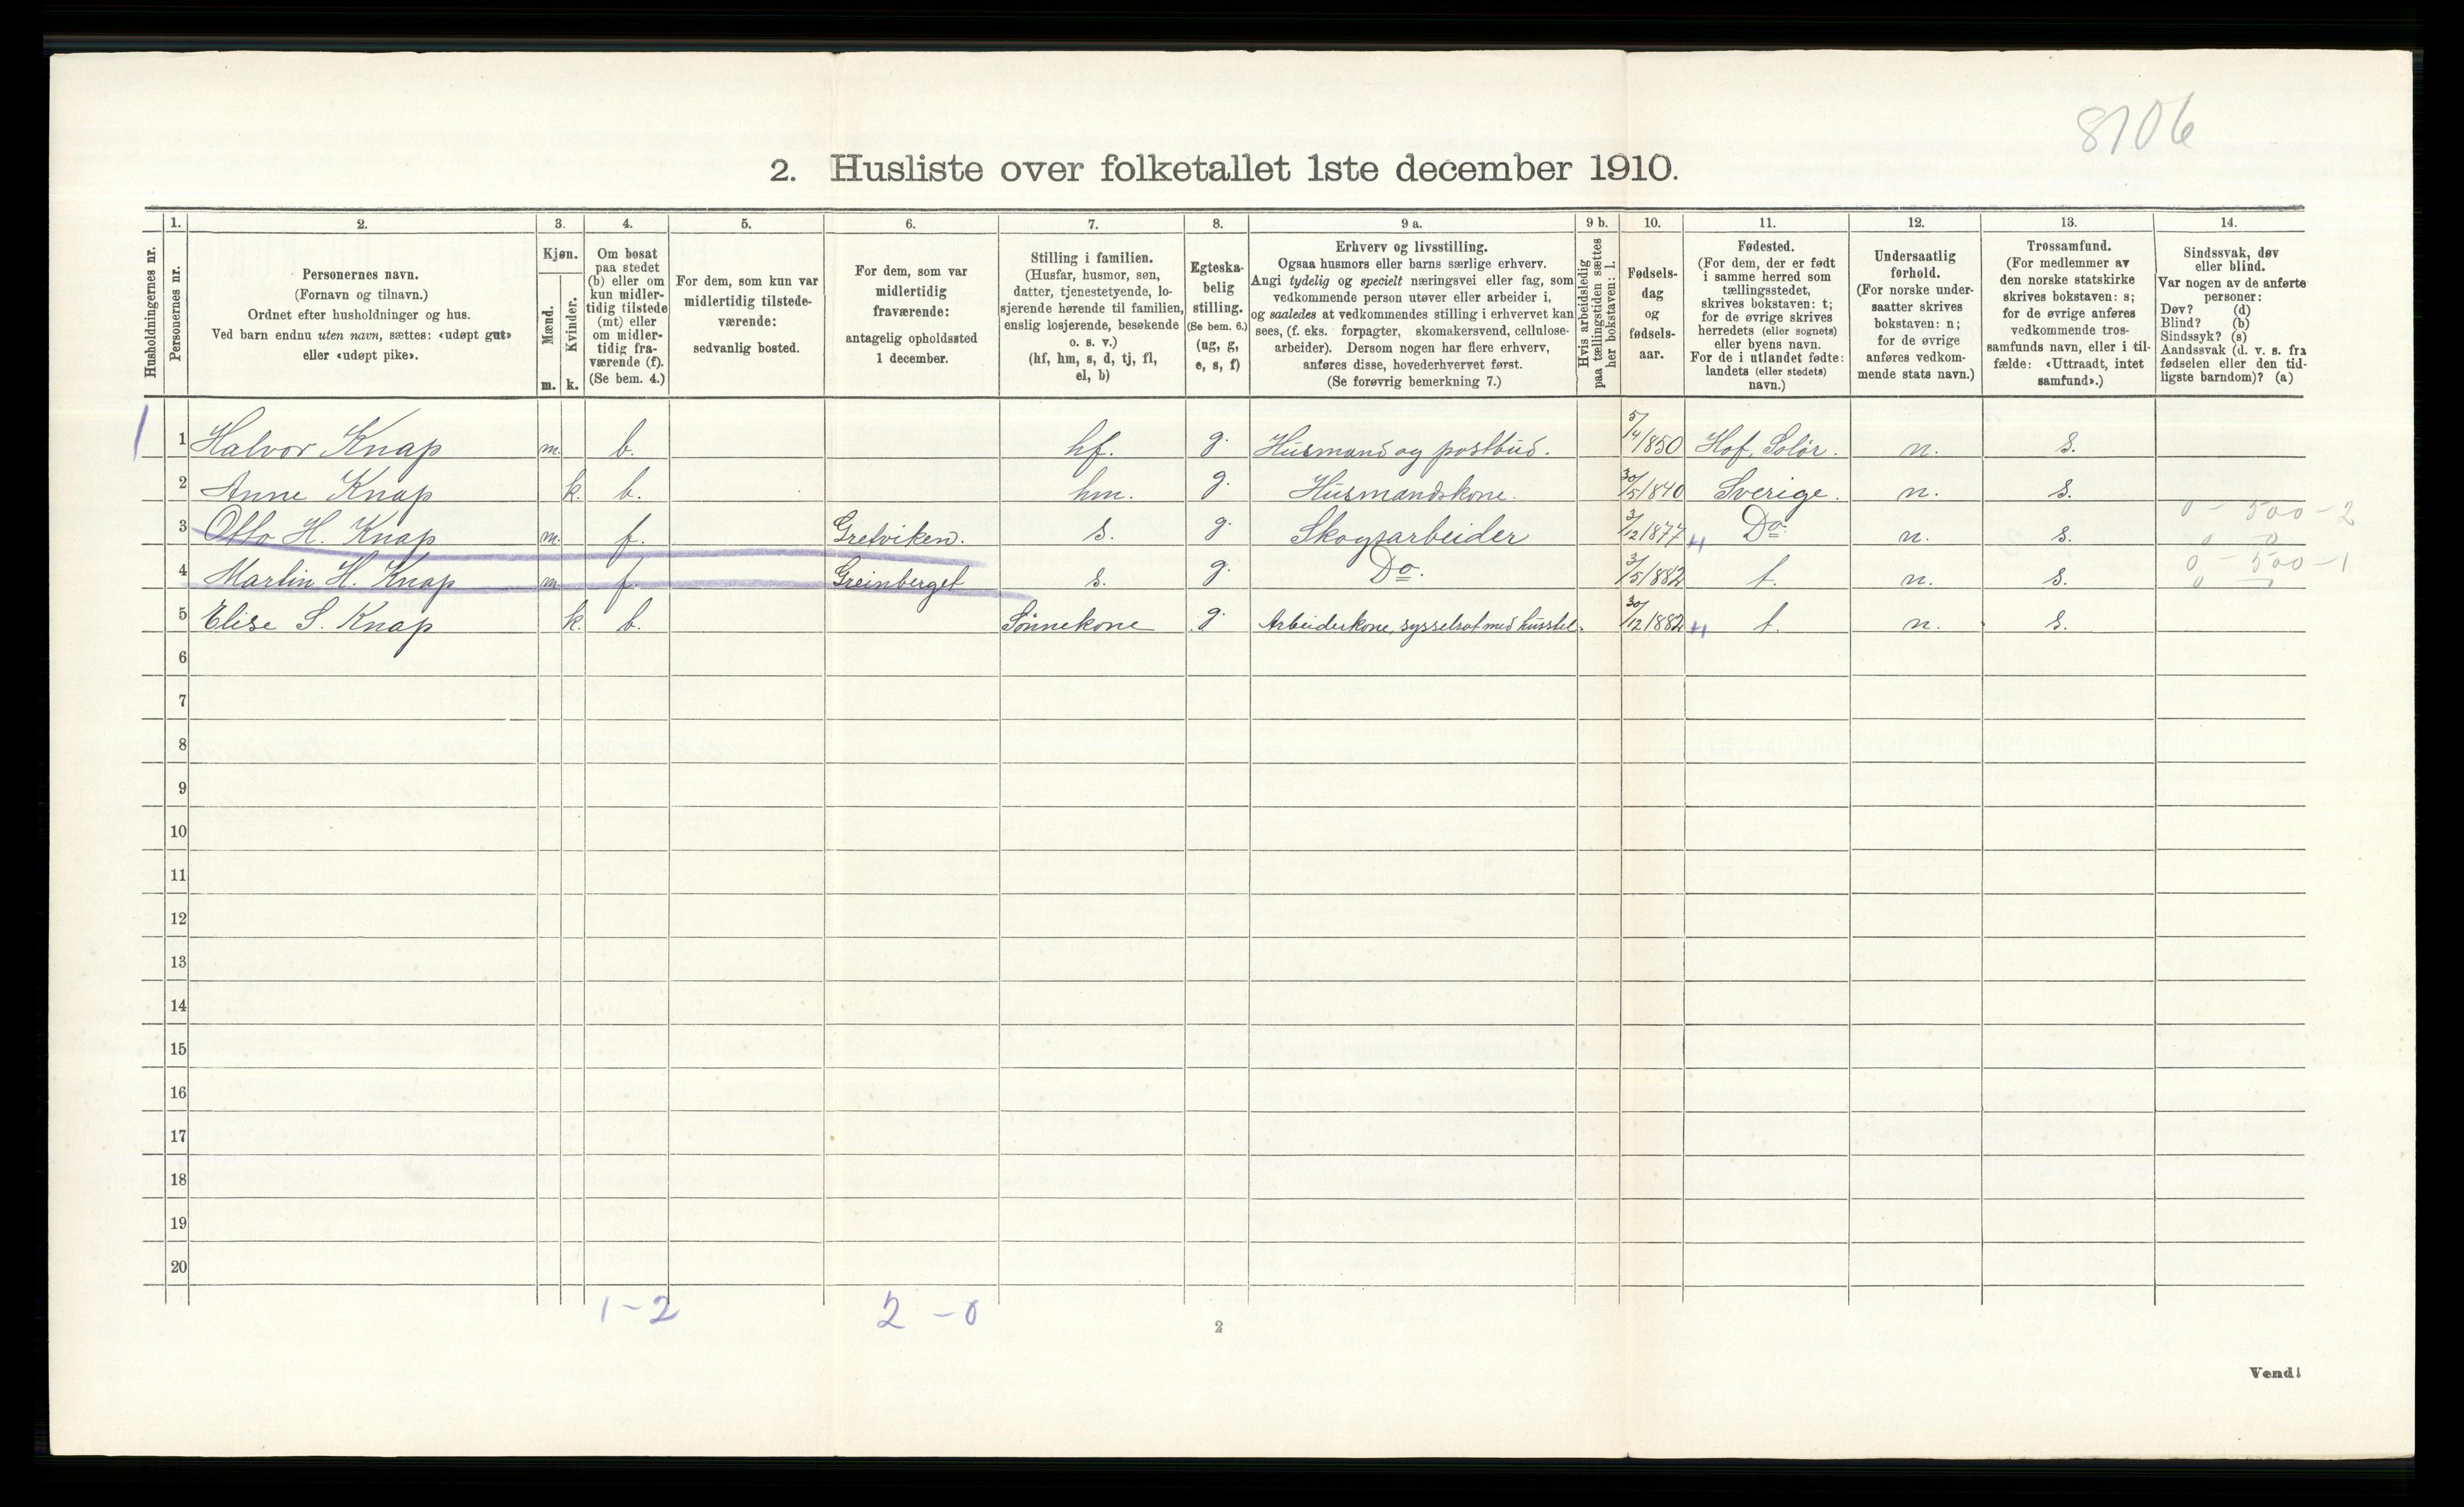 8106
2. Husliste over folketallet 1ste december 1910.
Husholdningernes nr.
1.
Personernes nr.
2.
Personernes navn.
(Fornavn og tilnavn.)
Ordnet efter husholdninger og hus.
Ved barn endnu uten navn, sættes: «udøpt gut»
eller «udøpt pike».
3.
Kjøn.
Mænd.
m.
Kvinder.
k.
4.
Om bosat
paa stedet
(b) eller om
kun midler-
tidig tilstede
(mt) eller
om midler-
tidig fra-
værende (f).
(Se bem. 4.)
5.
For dem, som kun var
midlertidig tilstede-
værende:
sedvanlig bosted.
6.
For dem, som var
midlertidig
fraværende:
antagelig opholdssted
1 december.
7.
Stilling i familien.
(Husfar, husmor, søn,
datter, tjenestetyende, lo-
sjerende hørende til familien,
enslig losjerende, besøkende
o. s. v.)
(hf, hm, s, d, tj, fl,
el, b)
8.
Egteska-
belig
stilling.
(Se bem. 6.)
(ug, g,
e, s, f)
9 a.
Erhverv og livsstilling.
Ogsaa husmors eller barns særlige erhverv.
Angi tydelig og specielt næringsvei eller fag, som
vedkommende person utøver eller arbeider i,
og saaledes at vedkommendes stilling i erhvervet kan
sees, (f. eks. forpagter, skomakersvend, cellulose-
arbeider). Dersom nogen har flere erhverv,
anføres disse, hovederhvervet først.
(Se forøvrig bemerkning 7.)
9 b.
Hvis arbeidsledig
paa tællingstiden sættes
her bokstaven: l.
10.
Fødsels-
dag
og
fødsels-
aar.
11.
Fødested.
(For dem, der er født
i samme herred som
tællingsstedet,
skrives bokstaven: t;
for de øvrige skrives
herredets (eller sognets)
eller byens navn.
For de i utlandet fødte:
landets (eller stedets)
navn.)
12.
Undersaatlig
forhold.
(For norske under-
saatter skrives
bokstaven: n;
for de øvrige
anføres vedkom-
mende stats navn.)
13.
Trossamfund.
(For medlemmer av
den norske statskirke
skrives bokstaven: s;
for de øvrige anføres
vedkommende tros-
samfunds navn, eller i til-
fælde: «Uttraadt, intet
samfund».)
14.
Sindssvak, døv
eller blind.
Var nogen av de anførte
personer:
Døv? (d)
Blind? (b)
Sindssyk? (s)
Aandssvak (d. v. s. fra
fødselen eller den tid-
ligste barndom)? (a)
1 1 Halvor Knap m. b. hf. g. Husmand og postbud. 5/4/850 Hof, Solør. n. s.
2 Anne Knap k. b. hm. g. Husmandskone. 30/5/840 Sverige. n. s.
0 - 500 - 2
3 Otto H. Knap m. f. s. g. Skogsarbeider 3/12/877 Do. n. s. 0 0
0 - 500 - 1
4 Martin H. Knap m. f. Greinberget s. g. Do. 3/5/882 t. n. s. 0 0
5 Elise S. Knap k. b. Sønnekone g. Arbeiderkone, sysselsat med husstel. 30/12/882 t. n. s.
6
7
8
9
10
11
12
13
14
15
16
17
18
19
20
1-2 2-0
2
Vend!